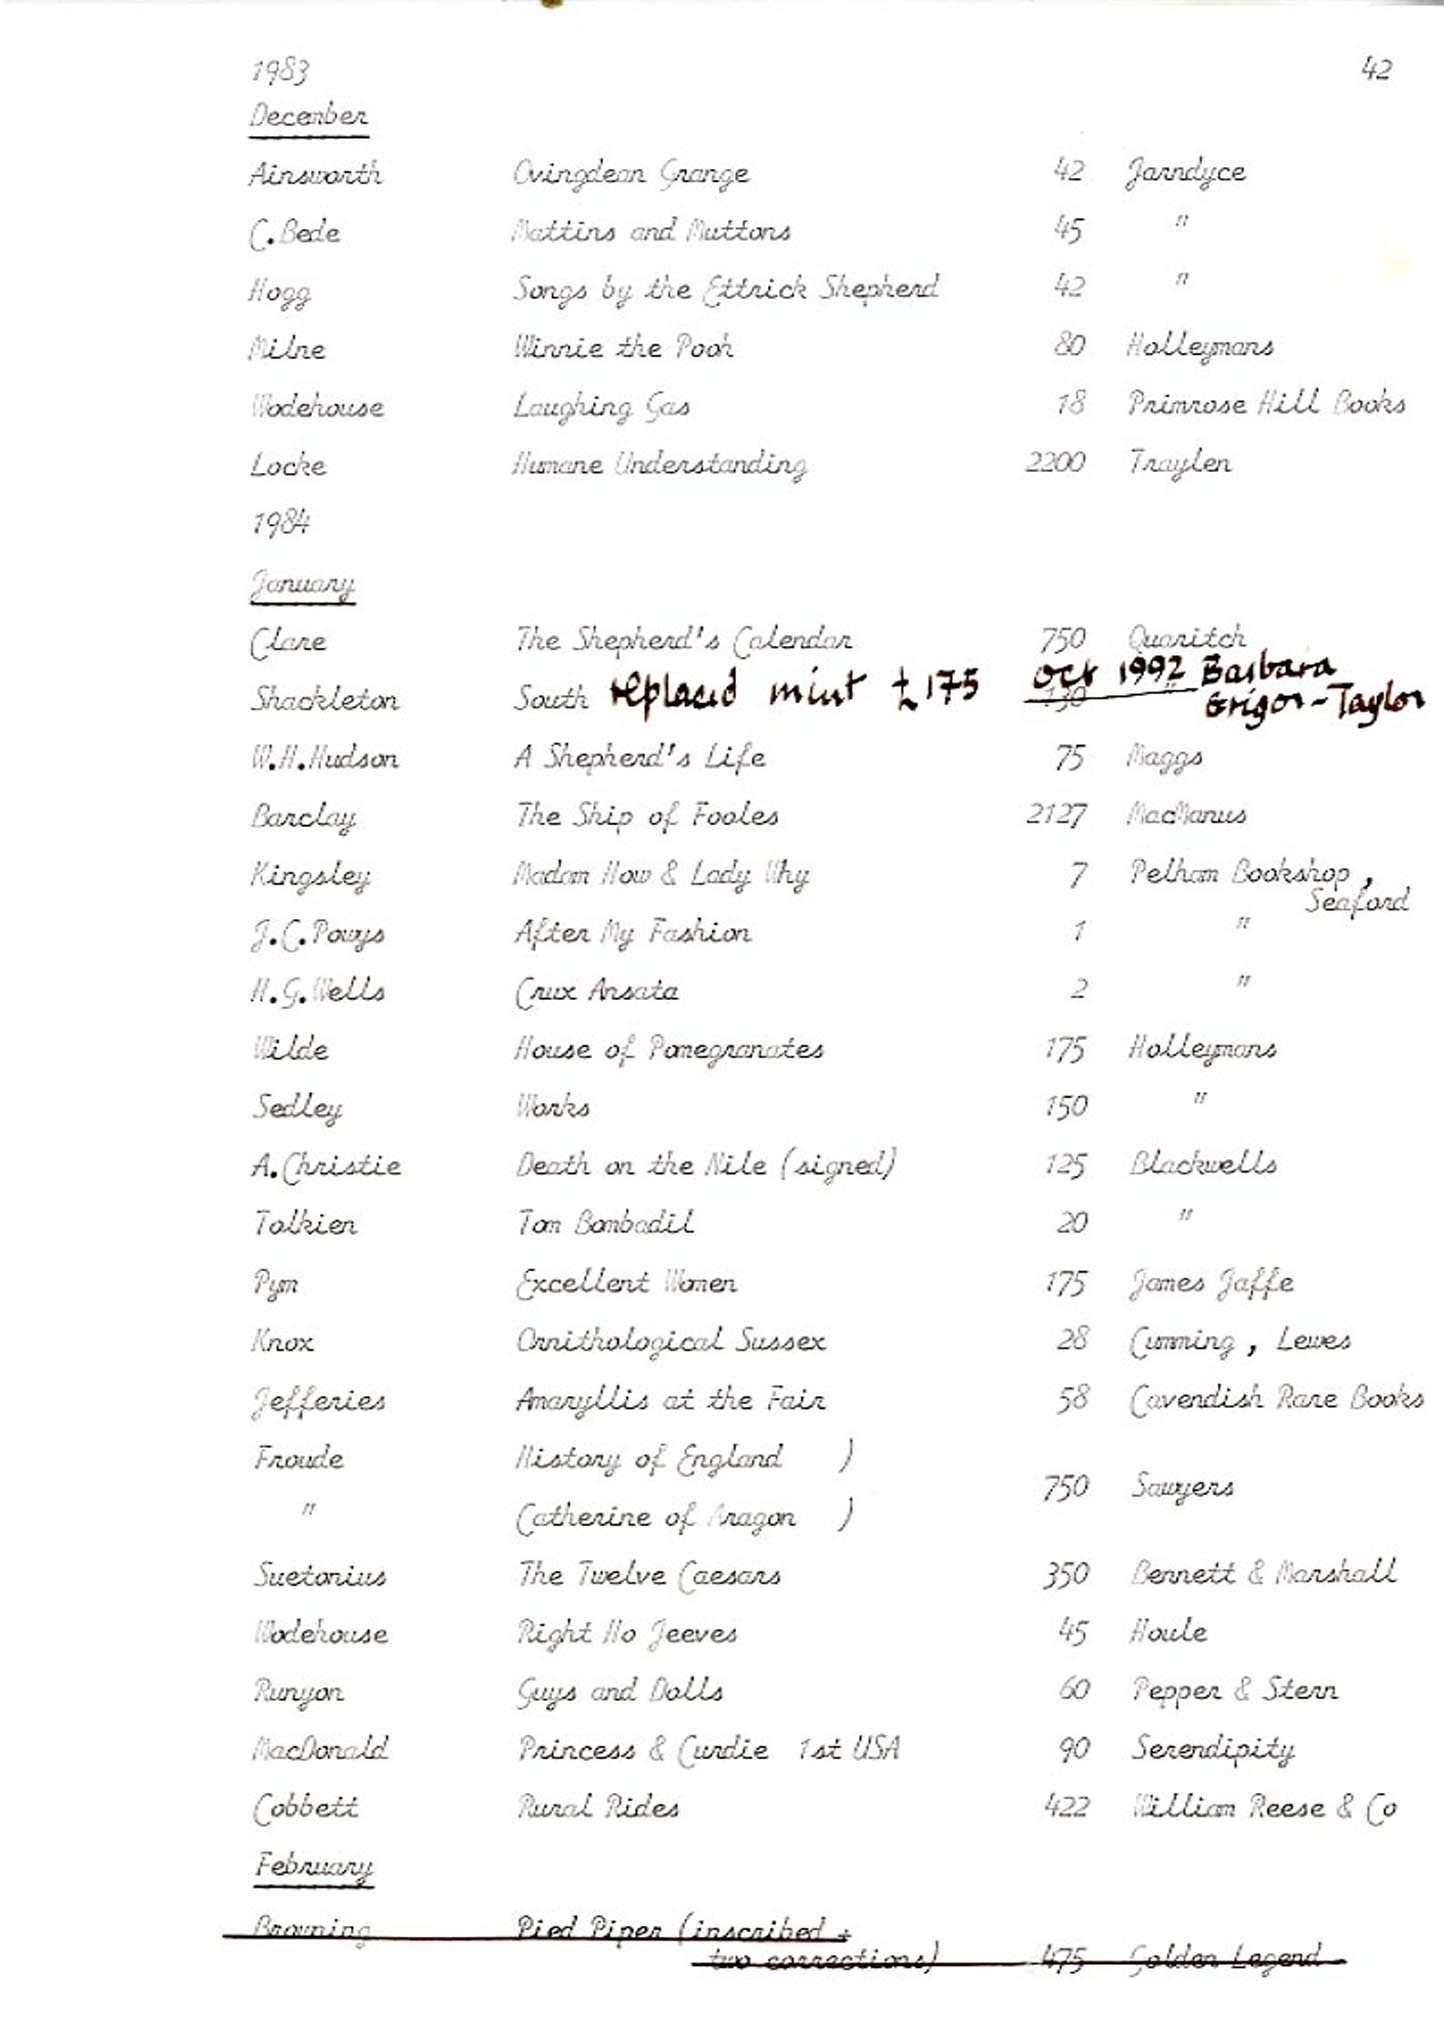 1983 42
December
Ainsworth Ovingdean Grange 42 Jarndyce
C.Bede Mattins and Muttons 45 "
Hogg Songs by the Ettrick Shepherd 42 "
Milne Winnie the Pooh 80 Holleymans
Wodehouse Laughing Gas 18 Primrose Hill Books
Locke Humane Understanding 2200 Traylen
1984
January
Clare The Shepherd's Calendar 750 Quaritch
Shackleton South replaced mint £175 130 Oct 1992 Barbara
Grigor-Taylor
W.H.Hudson A Shepherd's Life 75 Maggs
Barclay The Ship of Fooles 2127 MacManus
Kingsley Madam How & Lady Why 7 Pelham Bookshop,
Seaford
J.C.Powys After My Fashion 1 "
H.G.Wells Crux Ansata 2 "
Wilde House of Pomegranates 175 Holleymans
Sedley Works 150 "
A.Christie Death on the Nile (signed) 125 Blackwells
Tolkien Tom Bombadil 20 "
Pym Excellent Women 175 James Jaffe
Knox Ornithological Sussex 28 Cumming, Lewes
Jefferies Amaryllis at the Fair 58 Cavendish Rare Books
Froude History of England )
750 Sawyers
" Catherine of Aragon )
Suetonius The Twelve Caesars 350 Bennett & Marshall
Wodehouse Right Ho Jeeves 45 Houle
Runyon Guys and Dolls 60 Pepper & Stern
MacDonald Princess & Curdie 1st USA 90 Serendipity
Cobbett Rural Rides 422 William Reese & Co
February
Browning Pied Piper (inscribed +
two corrections) 475 Golden Legend